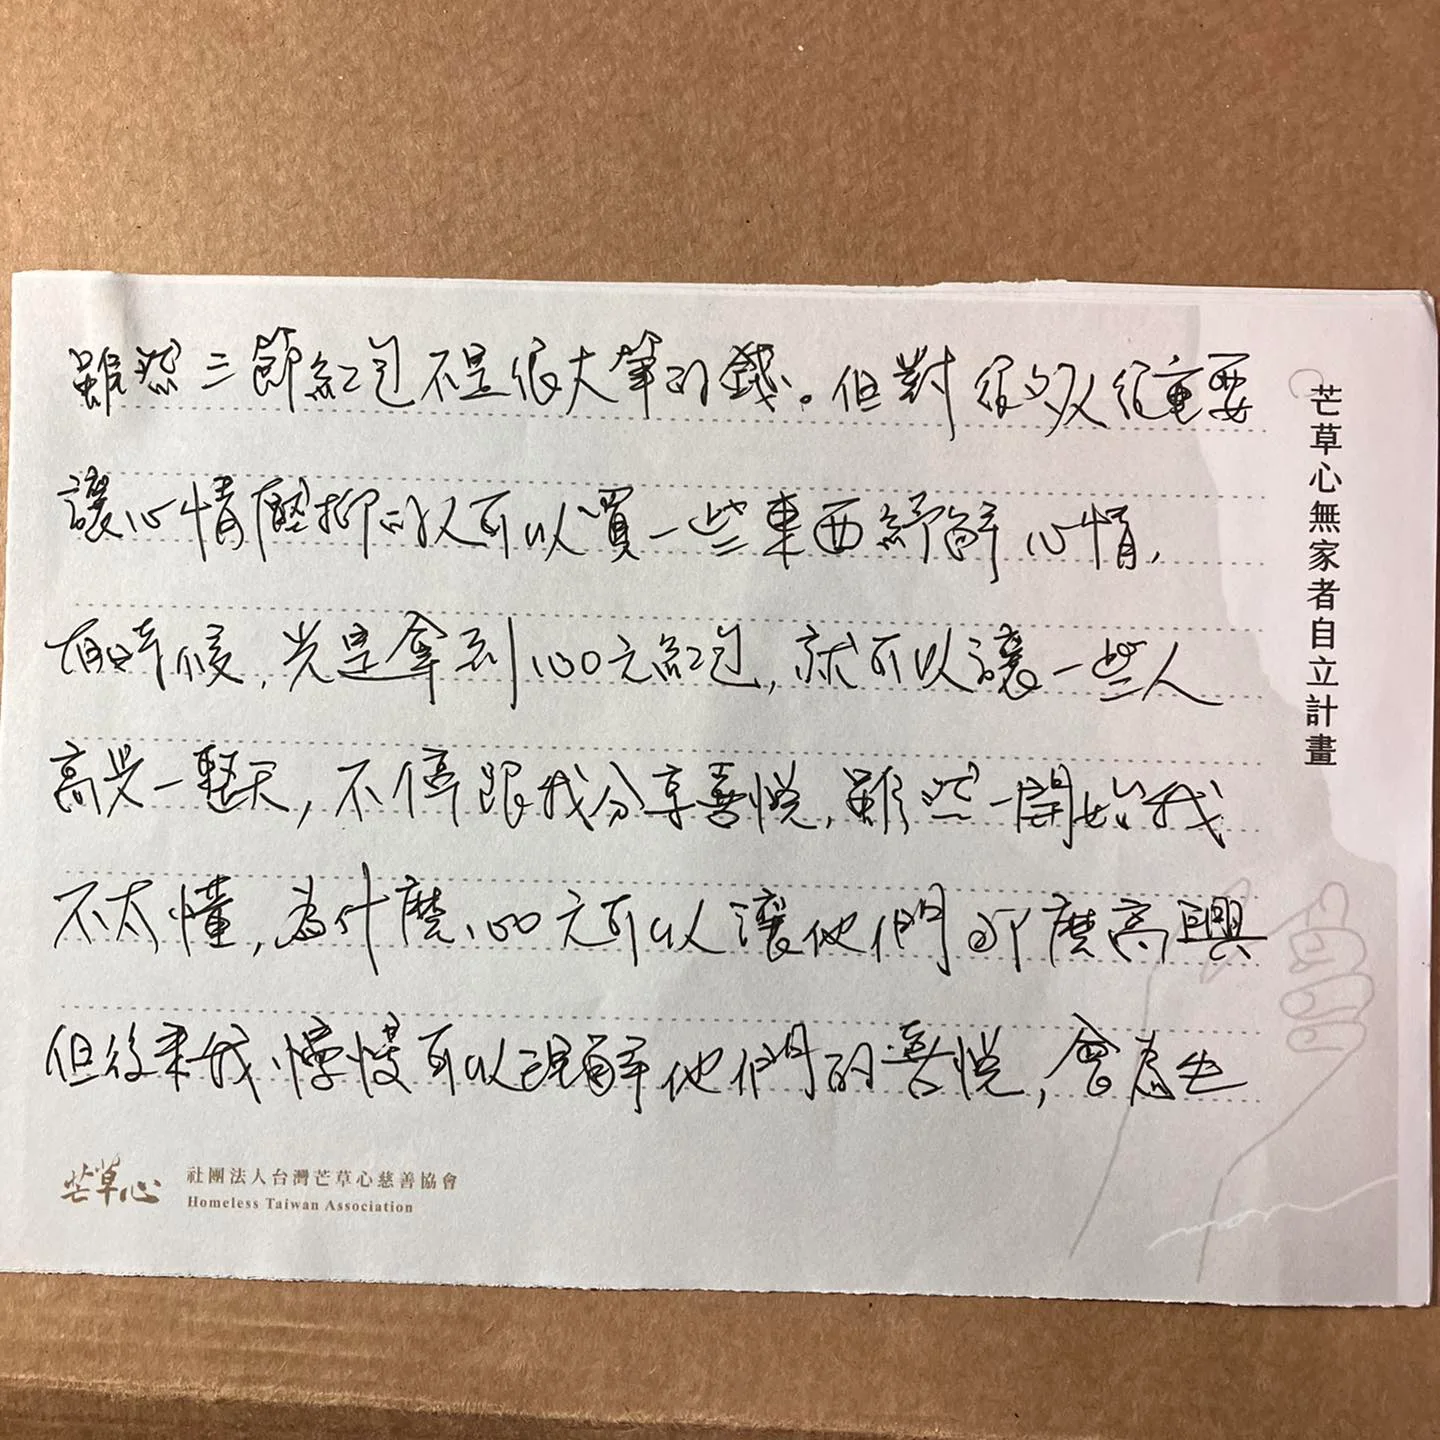 雖然三節紅包不是很大筆的錢。但對很多人很重要
讓心情壓抑的人可以買一些東西紓解心情,
有時候,光是拿到100元紅包,就可以讓一些人
高興一整天,不停跟我分享喜悅,雖然一開始我
不太懂,為什麼100元可以讓他們那麼高興
但後來我慢慢可以理解他們的喜悅,會為
芒草心無家者自立計畫
芒草心
社團法人台灣芒草心慈善協會
Homeless Taiwan Association